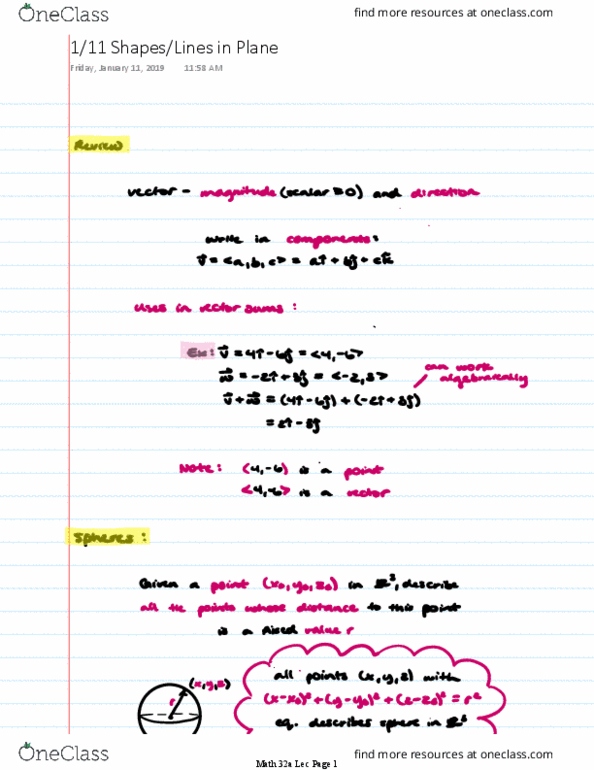 OneClass find more resources at oneclass.com
1/11 Shapes/Lines in Plane
Friday, January 11, 2019 11:58 AM
Review
vector - magnitude (scalar ≥0) and direction
write in components:
v⃗ = <a, b, c> = aî + bĵ + ck̂
uses in vector sums:
Ex: v⃗ = 4î - 6ĵ = <4, -6>
w⃗ = -2î + 3ĵ = <-2, 3>
can work
algebraically
v⃗ + w⃗ = (4î - 6ĵ) + (-2î + 3ĵ)
= 2î - 3ĵ
Note: (4, -6) is a point
<4, -6> is a vector
Spheres:
Given a point (x₀, y₀, z₀) in ℝ³, describe
all the points whose distance to this point
is a fixed value r
all points (x, y, z) with
(x, y, z)
r
(x-x₀)² + (y-y₀)² + (z-z₀)² = r²
eq. describes sphere in ℝ³
OneClass find more resources at oneclass.com
Math 32a Lec Page 1